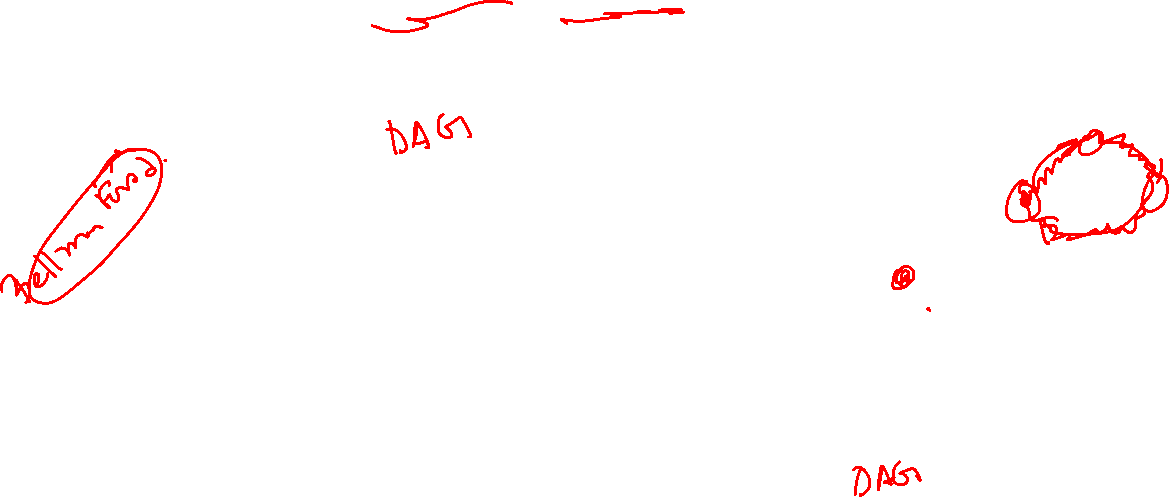 DAG
Bellman Ford
DAG